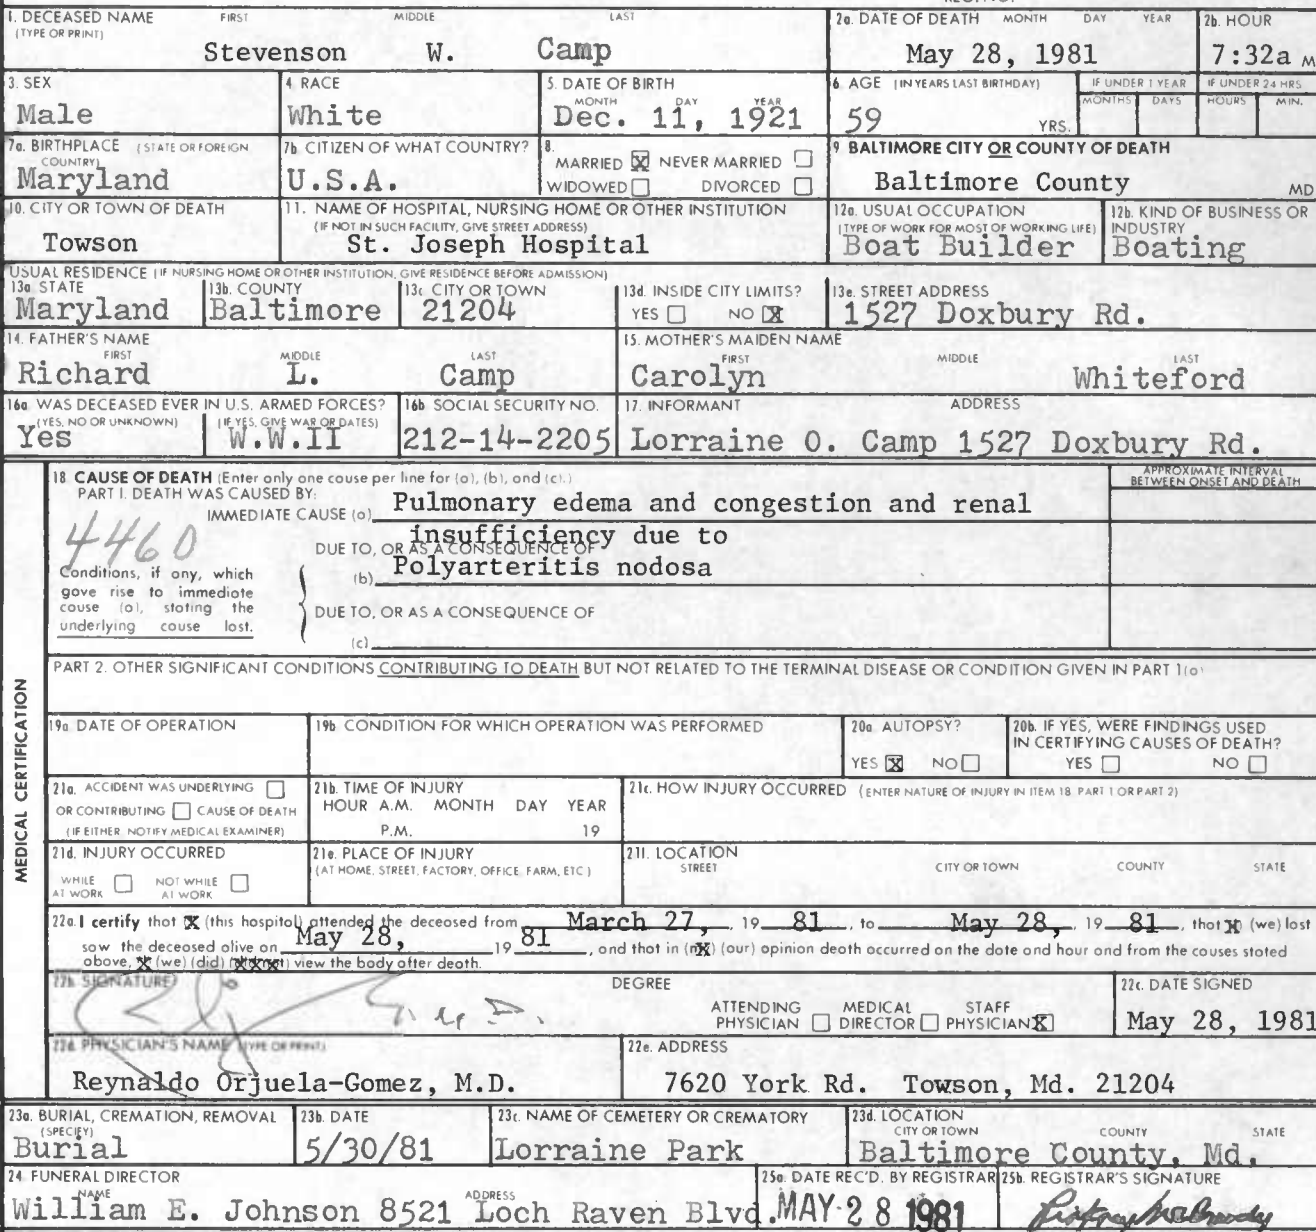 1. DECEASED NAME FIRST MIDDLE LAST
(TYPE OR PRINT)
Stevenson W. Camp
2a. DATE OF DEATH MONTH DAY YEAR
May 28, 1981
2b. HOUR
7:32a M
3. SEX
Male
4. RACE
White
5. DATE OF BIRTH
MONTH DAY YEAR
Dec. 11, 1921
6. AGE (IN YEARS LAST BIRTHDAY)
59 YRS.
IF UNDER 1 YEAR
MONTHS DAYS
IF UNDER 24 HRS
HOURS MIN.
7a. BIRTHPLACE (STATE OR FOREIGN
COUNTRY)
Maryland
7b. CITIZEN OF WHAT COUNTRY?
U.S.A.
8.
MARRIED X NEVER MARRIED
WIDOWED DIVORCED
9 BALTIMORE CITY OR COUNTY OF DEATH
Baltimore County MD
10. CITY OR TOWN OF DEATH
Towson
11. NAME OF HOSPITAL, NURSING HOME OR OTHER INSTITUTION
(IF NOT IN SUCH FACILITY, GIVE STREET ADDRESS)
St. Joseph Hospital
12a. USUAL OCCUPATION
(TYPE OF WORK FOR MOST OF WORKING LIFE)
Boat Builder
12b. KIND OF BUSINESS OR
INDUSTRY
Boating
USUAL RESIDENCE (IF NURSING HOME OR OTHER INSTITUTION, GIVE RESIDENCE BEFORE ADMISSION)
13a STATE
Maryland
13b. COUNTY
Baltimore
13c CITY OR TOWN
21204
13d. INSIDE CITY LIMITS?
YES NO X
13e. STREET ADDRESS
1527 Doxbury Rd.
14. FATHER'S NAME
FIRST MIDDLE LAST
Richard L. Camp
15. MOTHER'S MAIDEN NAME
FIRST MIDDLE LAST
Carolyn Whiteford
16a. WAS DECEASED EVER IN U.S. ARMED FORCES?
(YES, NO OR UNKNOWN) (IF YES, GIVE WAR OR DATES)
Yes W.W.II
16b SOCIAL SECURITY NO.
212-14-2205
17. INFORMANT ADDRESS
Lorraine O. Camp 1527 Doxbury Rd.
MEDICAL CERTIFICATION
18 CAUSE OF DEATH (Enter only one cause per line for (a), (b), and (c).)
APPROXIMATE INTERVAL
BETWEEN ONSET AND DEATH
PART I. DEATH WAS CAUSED BY:
IMMEDIATE CAUSE (a) Pulmonary edema and congestion and renal
insufficiency due to
4460
DUE TO, OR AS A CONSEQUENCE OF
(b) Polyarteritis nodosa
Conditions, if any, which
gave rise to immediate
cause (a), stating the
underlying cause last.
DUE TO, OR AS A CONSEQUENCE OF
(c)
PART 2. OTHER SIGNIFICANT CONDITIONS CONTRIBUTING TO DEATH BUT NOT RELATED TO THE TERMINAL DISEASE OR CONDITION GIVEN IN PART 1(a)
19a. DATE OF OPERATION
19b. CONDITION FOR WHICH OPERATION WAS PERFORMED
20a. AUTOPSY?
YES X NO
20b. IF YES, WERE FINDINGS USED
IN CERTIFYING CAUSES OF DEATH?
YES NO
21a. ACCIDENT WAS UNDERLYING
OR CONTRIBUTING CAUSE OF DEATH
(IF EITHER, NOTIFY MEDICAL EXAMINER)
21b. TIME OF INJURY
HOUR A.M. MONTH DAY YEAR
P.M. 19
21c. HOW INJURY OCCURRED (ENTER NATURE OF INJURY IN ITEM 18 PART 1 OR PART 2)
21d. INJURY OCCURRED
WHILE AT WORK NOT WHILE AT WORK
21e. PLACE OF INJURY
(AT HOME, STREET, FACTORY, OFFICE, FARM, ETC.)
21f. LOCATION
STREET CITY OR TOWN COUNTY STATE
22a. I certify that X (this hospital) attended the deceased from March 27, 19 81, to May 28, 19 81, that X (we) last
saw the deceased alive on May 28, 19 81, and that in (my) (our) opinion death occurred on the date and hour and from the causes stated
above, X (we) (did) view the body after death.
22b SIGNATURE
DEGREE
M.D.
ATTENDING PHYSICIAN MEDICAL DIRECTOR STAFF PHYSICIAN X
22c. DATE SIGNED
May 28, 1981
22d. PHYSICIAN'S NAME (TYPE OR PRINT)
Reynaldo Orjuela-Gomez, M.D.
22e. ADDRESS
7620 York Rd. Towson, Md. 21204
23a. BURIAL, CREMATION, REMOVAL
(SPECIFY)
Burial
23b. DATE
5/30/81
23c. NAME OF CEMETERY OR CREMATORY
Lorraine Park
23d. LOCATION
CITY OR TOWN COUNTY STATE
Baltimore County, Md.
24 FUNERAL DIRECTOR
NAME ADDRESS
William E. Johnson 8521 Loch Raven Blvd.
25a. DATE REC'D. BY REGISTRAR
MAY 28 1981
25b. REGISTRAR'S SIGNATURE